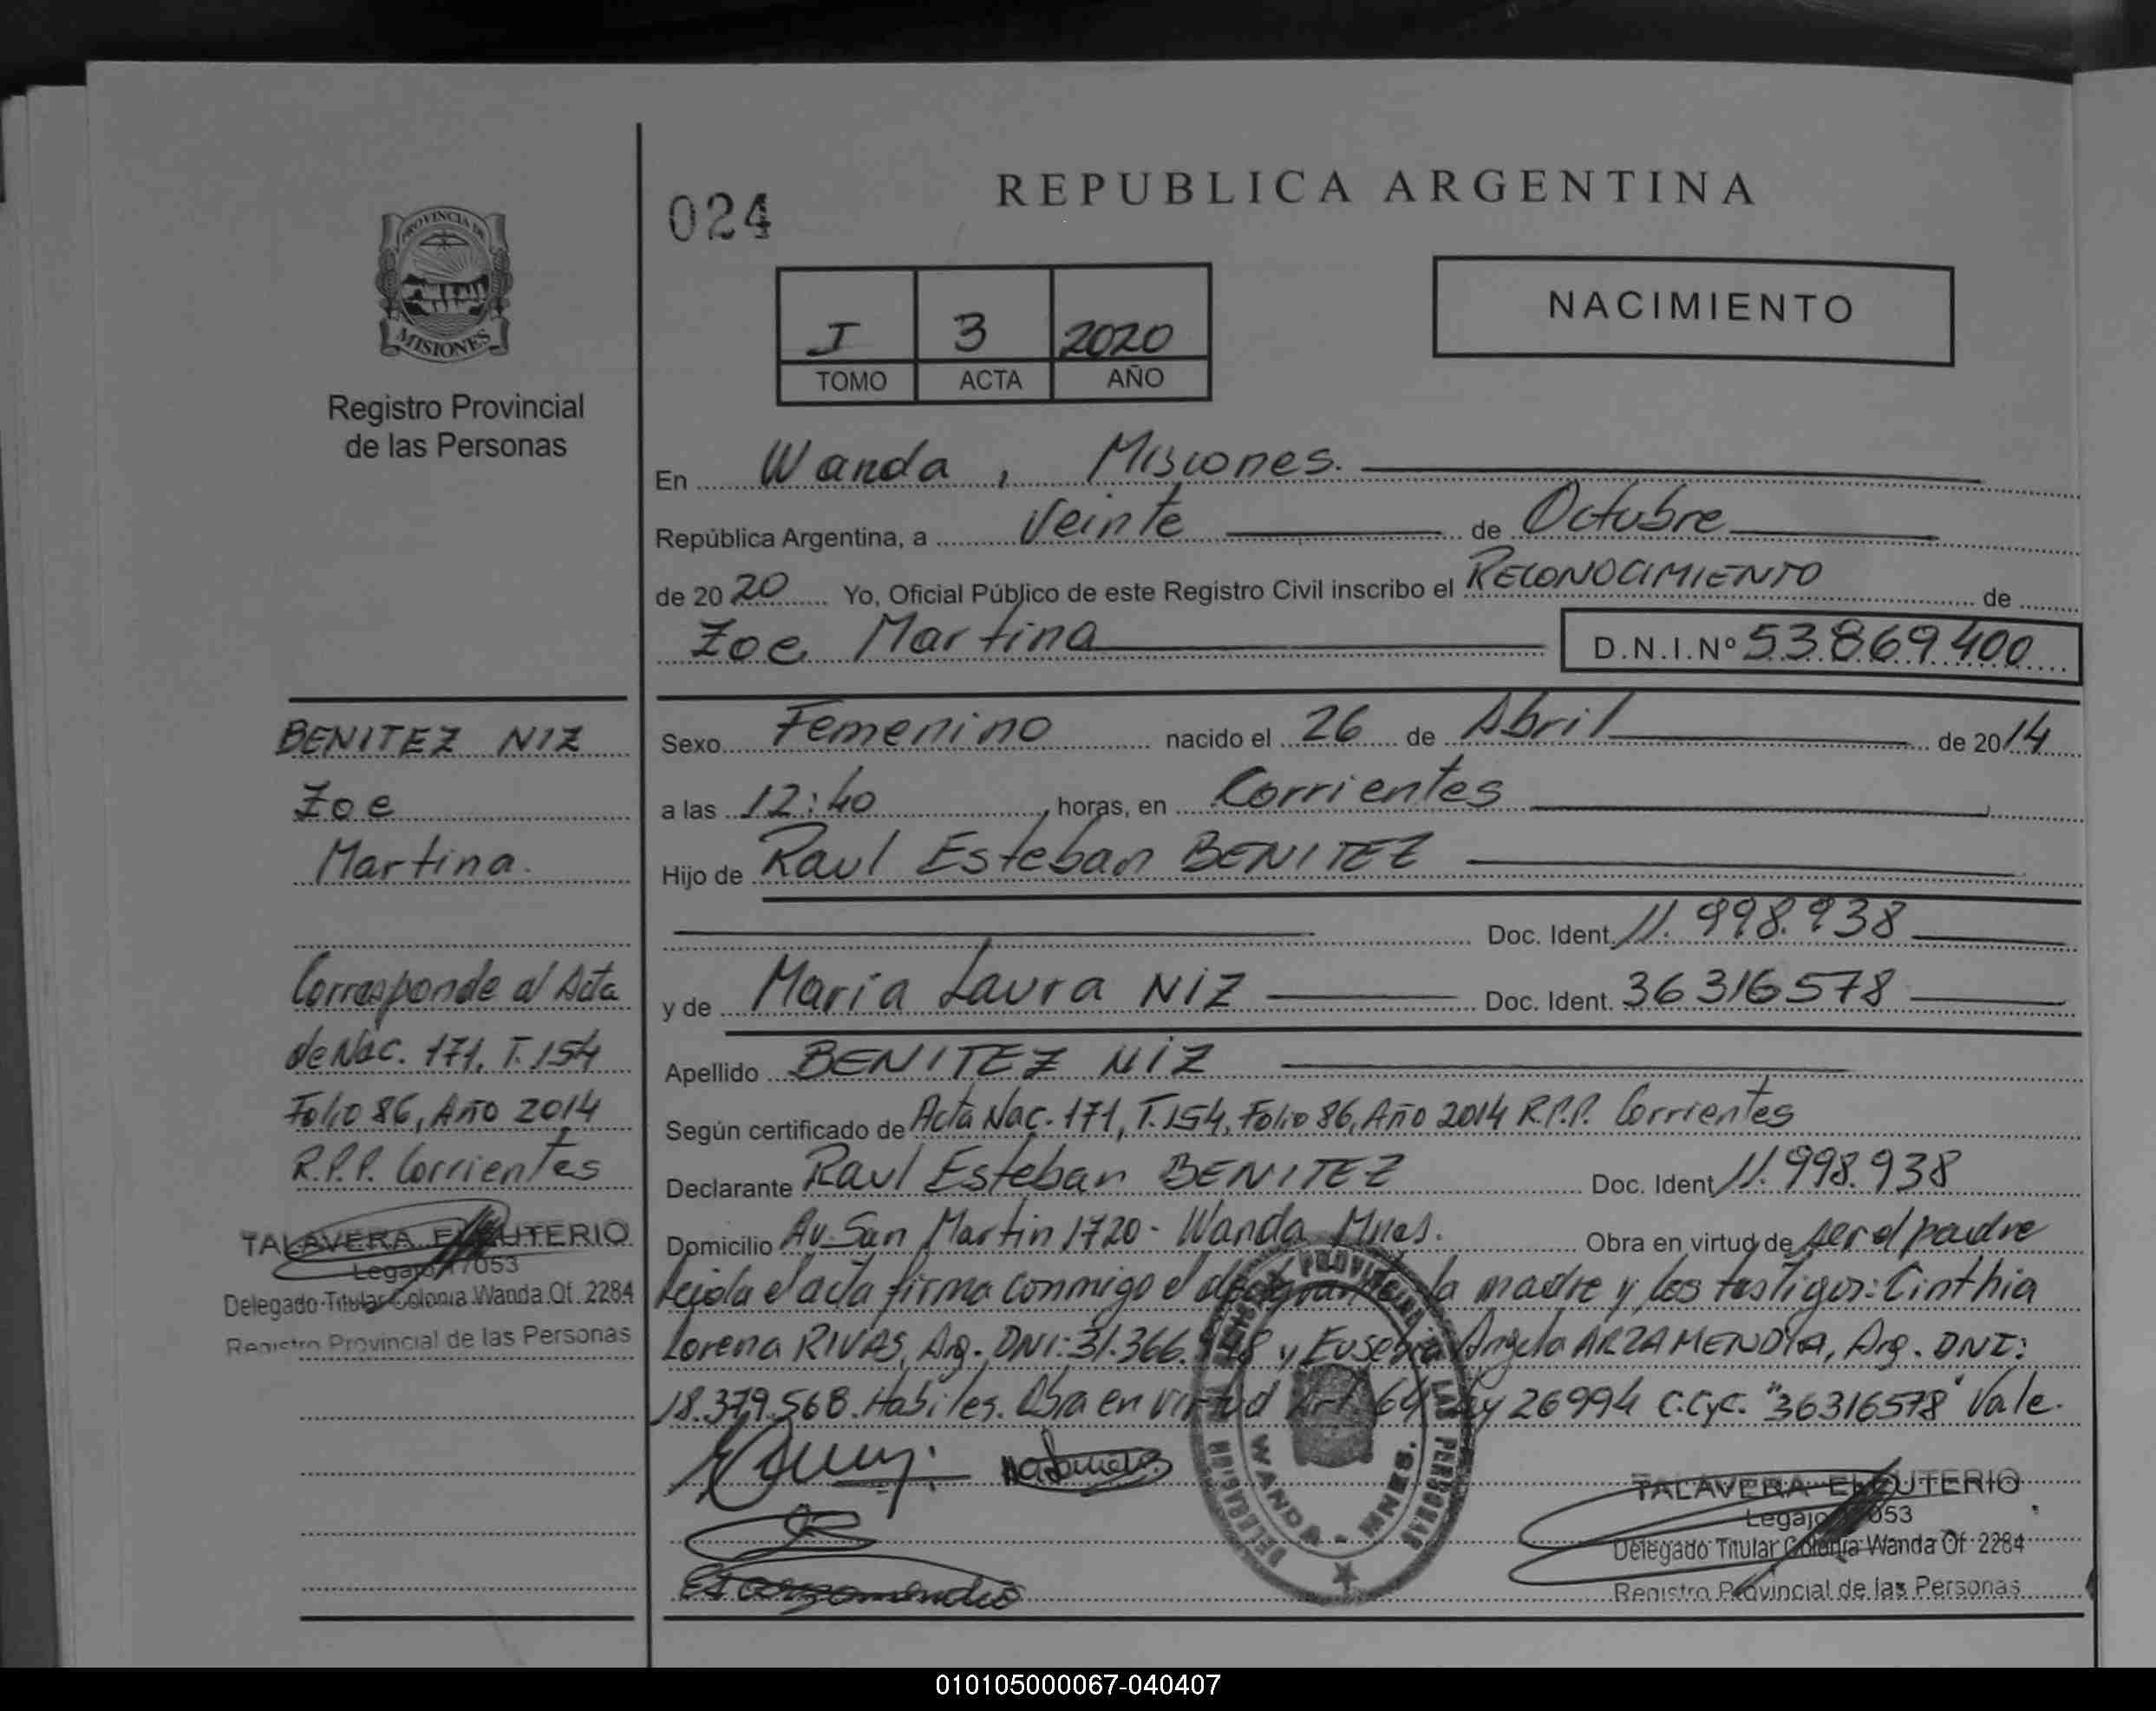 024
REPUBLICA ARGENTINA
NACIMIENTO
I 3 2020
TOMO ACTA AÑO
PROVINCIA DE
MISIONES
Registro Provincial
de las Personas
En Wanda, Misiones.
República Argentina, a Veinte de Octubre
de 2020 Yo, Oficial Público de este Registro Civil inscribo el RECONOCIMIENTO de
Zoe Martina D.N.I.Nº 53.869.400
BENITEZ NIZ
Zoe
Martina.
Corresponde al Acta
de Nac. 171, T. 154
Folio 86, Año 2014
R.P.P. Corrientes
TALAVERA ELEUTERIO
Legajo 17053
Delegado Titular Colonia Wanda Of. 2284
Registro Provincial de las Personas
Sexo Femenino nacido el 26 de Abril de 2014
a las 12:40, horas, en Corrientes
Hijo de Raul Esteban BENITEZ
Doc. Ident. 11.998.938
y de Maria Laura NIZ Doc. Ident. 36316578
Apellido BENITEZ NIZ
Según certificado de Acta Nac. 171, T.154, Folio 86, Año 2014 R.P.P. Corrientes
Declarante Raul Esteban BENITEZ Doc. Ident 11.998.938
Domicilio Av. San Martin 1720 - Wanda Mnes. Obra en virtud de ser el padre
leida el acta firma conmigo el declarante la madre y los testigos: Cinthia
Lorena RIVAS, Arg. DNI: 31.366. y Eusebia Angela ARZAMENDIA, Arg. DNI:
18.379.568. Habiles. Obra en virtud Art. 64 Ley 26994 C.Cyc. "36316578" Vale.
DELEGACION PROVINCIAL DE LAS PERSONAS
WANDA - MNES.
TALAVERA ELEUTERIO
Legajo 17053
Delegado Titular Colonia Wanda Of. 2284
Registro Provincial de las Personas
010105000067-040407